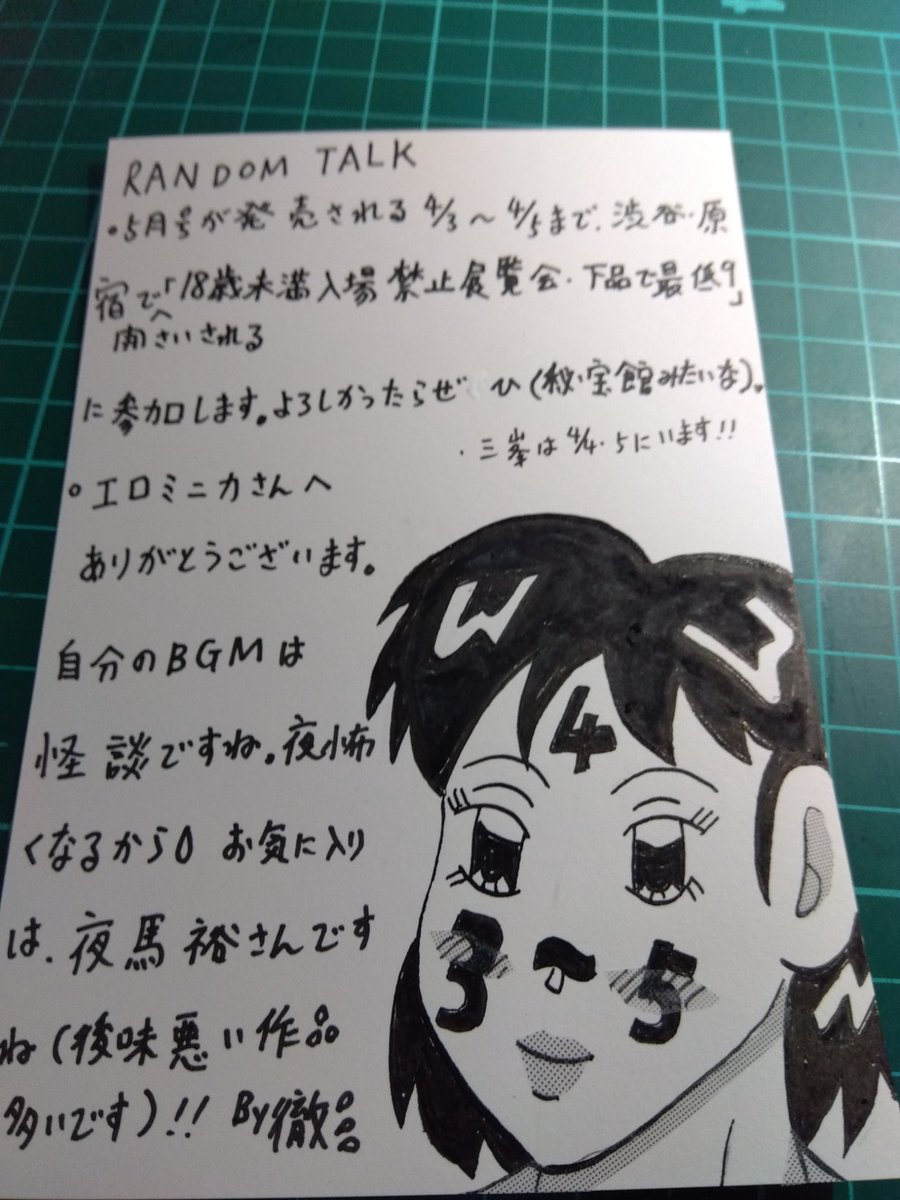 RANDOM TALK
•5月号が発売される4/3〜4/5まで、渋谷・原
宿で「18歳未満入場禁止展覧会・下品で最低9」
開さいされる
に参加します。よろしかったらぜひ(秘宝館みたいな)。
・三峯は4/4・5にいます!!
•エロミニカさんへ
ありがとうございます。
自分のBGMは
怪談ですね。夜怖
くなるから0 お気に入り
は、夜馬裕さんです
ね(後味悪い作品
多いです)!! By徹
4
3 〜 5